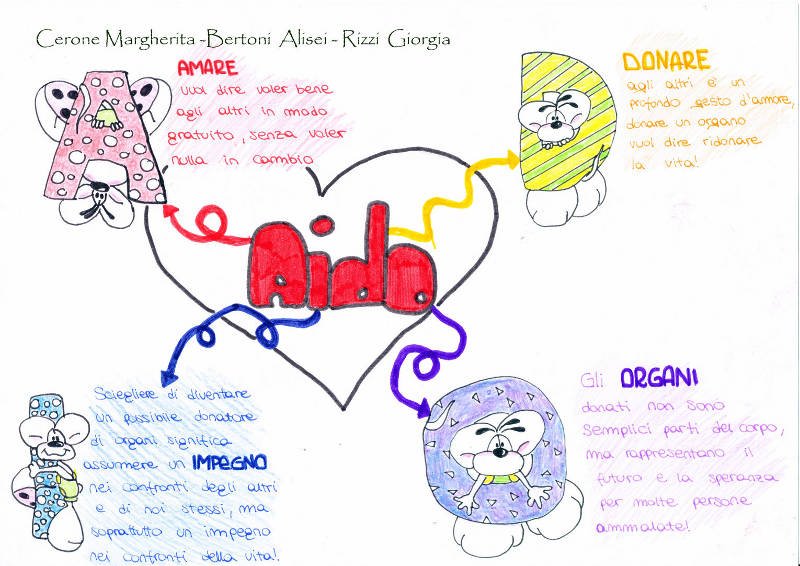 Cerone Margherita -Bertoni Alisei - Rizzi Giorgia
AMARE
vuol dire voler bene
agli altri in modo
gratuito, senza voler
nulla in cambio
DONARE
agli altri e' un
profondo gesto d'amore,
donare un organo
vuol dire ridonare
la vita!
Aido
A
D
I
O
Sciegliere di diventare
un possibile donatore
di organi significa
assumere un IMPEGNO
nei confronti degli altri
e di noi stessi, ma
soprattutto un impegno
nei confronti della vita!
Gli ORGANI
donati non sono
semplici parti del corpo,
ma rappresentano il
futuro e la speranza
per molte persone
ammalate!